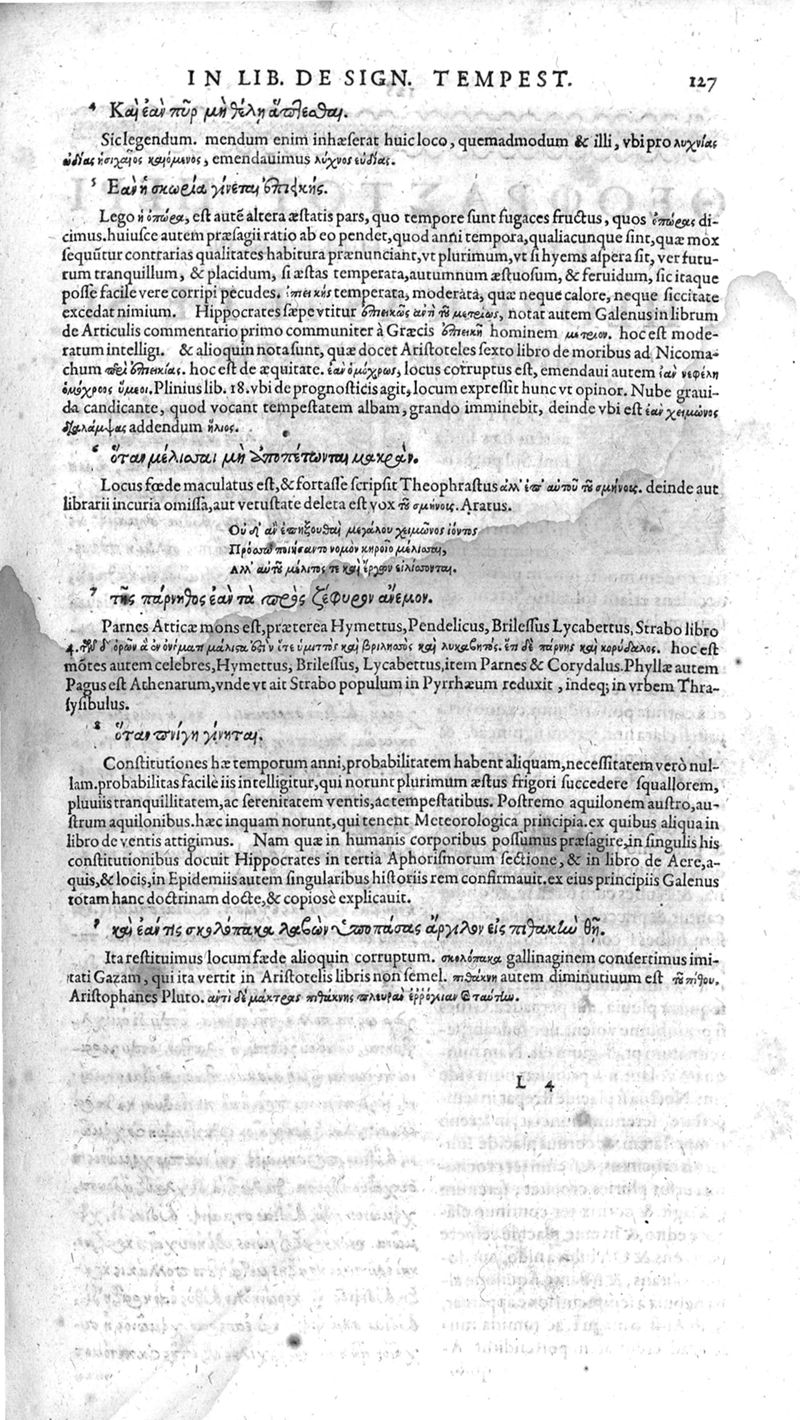 IN LIB. DE SIGN. TEMPEST. 127
4 Καὶ ἐὰν πῦρ μὴ θέλῃ ἅπτεσθαι.
Sic legendum. mendum enim inhæserat huic loco, quemadmodum & illi, vbi pro λυχνίας
ὐδίας ἡσιχαῖος καιόμενος, emendauimus λύχνος εὐδίας.
5 Ἐὰν ἡ σκωρία γίνεται ἐπιεικής.
Lego ἡ ὀπώρα, est autē altera æstatis pars, quo tempore sunt fugaces fructus, quos ὀπώρας di-
cimus. huiusce autem præsagii ratio ab eo pendet, quod anni tempora, qualiacunque sint, quæ mox
sequūtur contrarias qualitates habitura prænunciant, vt plurimum, vt si hyems aspera sit, ver futu-
rum tranquillum, & placidum, si æstas temperata, autumnum æstuosum, & feruidum, sic itaque
posse facile vere corripi pecudes. ἐπιεικὴς temperata, moderata, quæ neque calore, neque siccitate
excedat nimium. Hippocrates sæpe vtitur ἐπιεικῶς ἀντὶ τοῦ μετρίως, notat autem Galenus in librum
de Articulis commentario primo communiter à Græcis ἐπιεικῆ hominem μέτριον. hoc est mode-
ratum intelligi. & alioquin nota sunt, quæ docet Aristoteles sexto libro de moribus ad Nicoma-
chum περὶ ἐπιεικίας. hoc est de æquitate. ἐὰν ὁμόχρως, locus corruptus est, emendaui autem ἐὰν νεφέλη
ὁμόχροος ὕμεοι. Plinius lib. 18. vbi de prognosticis agit, locum expressit hunc vt opinor. Nube graui-
da candicante, quod vocant tempestatem albam, grando imminebit, deinde vbi est ἐὰν χειμῶνος
διαλάμψας addendum ἥλιος.
6 ὅταν μέλισσαι μὴ ἀποπέτωνται μακρὰν.
Locus fœde maculatus est, & fortasse scripsit Theophrastus ἀλλ' ἐπ' αὐτοῦ τοῦ σμήνοις. deinde aut
librarii incuria omissa, aut vetustate deleta est vox τοῦ σμήνοις. Aratus.
Οὐ δ' ἂν ἐπηξουθαὶ μεγάλου χειμῶνος ἰόντος
Πρόσσω ποιήσαντο νομὸν κηροῖο μέλισσαι,
Ἀλλ' αὐτοῦ μέλιτος τε καὶ ἔργων εἱλίσσονται.
7 τῆς πάρνηθος ἐὰν τὰ πρὸς ζέφυρον ἄνεμον.
Parnes Atticæ mons est, præterea Hymettus, Pendelicus, Brilessus Lycabettus, Strabo libro
4. τῶν δ' ὀρῶν ἃ ὂν ὀνόματι μάλιστα ἐστὶν ὅτε ὑμιττὸς καὶ βριλησσὸς καὶ λυκαβητός. ἔτι δὲ πάρνης καὶ κορύδαλος. hoc est
mōtes autem celebres, Hymettus, Brilessus, Lycabettus, item Parnes & Corydalus. Phyllæ autem
Pagus est Athenarum, vnde vt ait Strabo populum in Pyrrhæum reduxit, indeq; in vrbem Thra-
sysibulus.
8 ὅταν πνίγη γίνηται.
Constitutiones hæ temporum anni, probabilitatem habent aliquam, necessitatem verò nul-
lam. probabilitas facilè iis intelligitur, qui norunt plurimum æstus frigori succedere squallorem,
pluuiis tranquillitatem, ac serenitatem ventis, ac tempestatibus. Postremo aquilonem austro, au-
strum aquilonibus. hæc inquam norunt, qui tenent Meteorologica principia. ex quibus aliqua in
libro de ventis attigimus. Nam quæ in humanis corporibus possumus præsagire, in singulis his
constitutionibus docuit Hippocrates in tertia Aphorismorum sectione, & in libro de Aere, a-
quis, & locis, in Epidemiis autem singularibus historiis rem confirmauit. ex eius principiis Galenus
totam hanc doctrinam doctè, & copiosè explicauit.
9 καὶ ἐάν τις σκολόπακα λαβὼν ὑποπάσας ἄργιλον εἰς πιθάκνην θῇ.
Ita restituimus locum fæde alioquin corruptum. σκολόπακα gallinaginem conuertimus imi-
tati Gazam, qui ita vertit in Aristotelis libris non semel. πιθάκνη autem diminutiuum est τοῦ πίθου.
Aristophanes Pluto. ἀντὶ δὲ μάκτρας πιθάκνης πλευρὰν ἐῤῥωγίαν ταύτην.
L 4